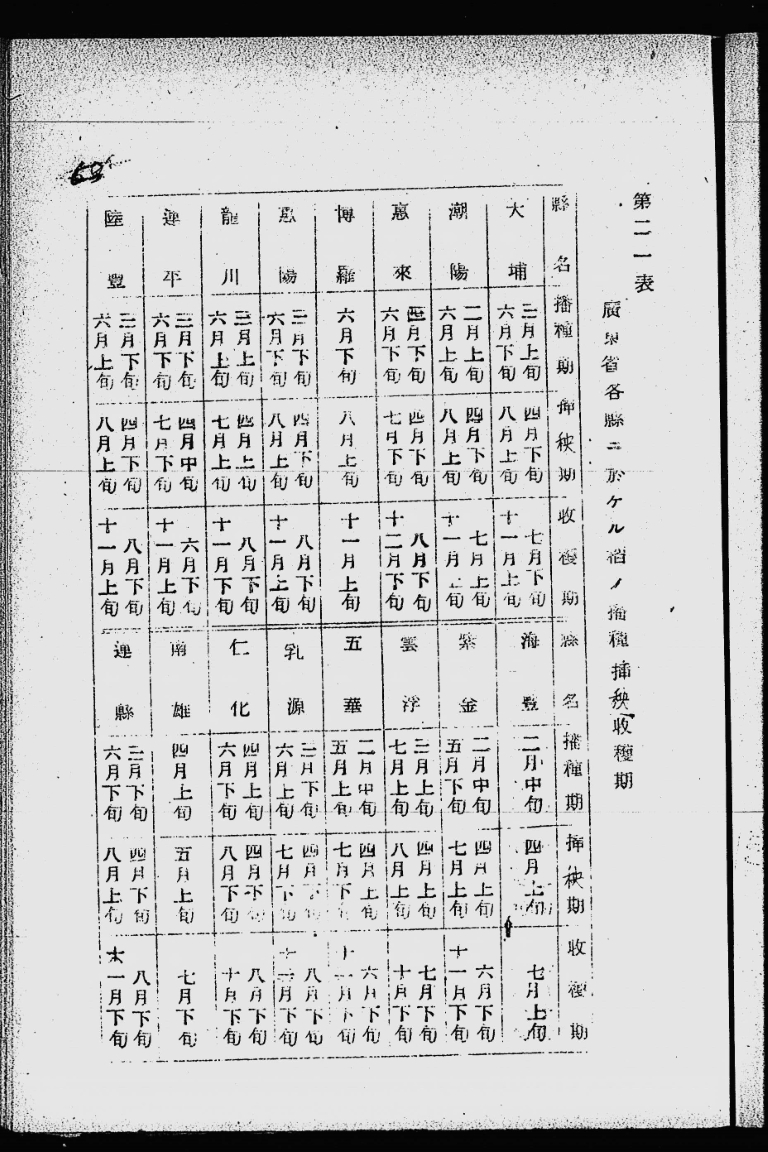 第二一表
廣東省各縣ニ於ケル稻ノ播種挿秧收穫期
縣名 播種期 挿秧期 收穫期
大埔 三月上旬 六月下旬 四月下旬 八月上旬 七月下旬 十一月上旬
潮陽 二月上旬 六月上旬 四月下旬 八月上旬 七月上旬 十一月上旬
惠來 四月下旬 六月下旬 四月下旬 七月下旬 八月下旬 十二月下旬
博羅 六月下旬 八月上旬 十一月上旬
惠陽 三月下旬 六月下旬 四月下旬 八月上旬 八月下旬 十一月上旬
龍川 三月上旬 六月上旬 四月上旬 七月上旬 八月下旬 十一月下旬
連平 三月下旬 六月下旬 四月中旬 七月下旬 六月下旬 十一月上旬
陸豐 三月下旬 六月上旬 四月下旬 八月上旬 八月下旬 十一月上旬
縣名 播種期 挿秧期 收穫期
海豐 二月中旬 四月上旬 七月上旬
紫金 二月中旬 五月下旬 四月上旬 七月上旬 六月下旬 十一月下旬
雲浮 三月上旬 七月上旬 四月上旬 八月上旬 七月下旬 十月下旬
五華 二月中旬 五月上旬 四月上旬 七月下旬 六月下旬 十一月下旬
乳源 三月下旬 六月上旬 四月下旬 七月下旬 八月下旬 十一月下旬
仁化 四月上旬 六月下旬 四月下旬 八月下旬 八月下旬 十月下旬
南雄 四月上旬 五月上旬 七月下旬
連縣 三月下旬 六月下旬 四月下旬 八月上旬 八月下旬 十一月下旬